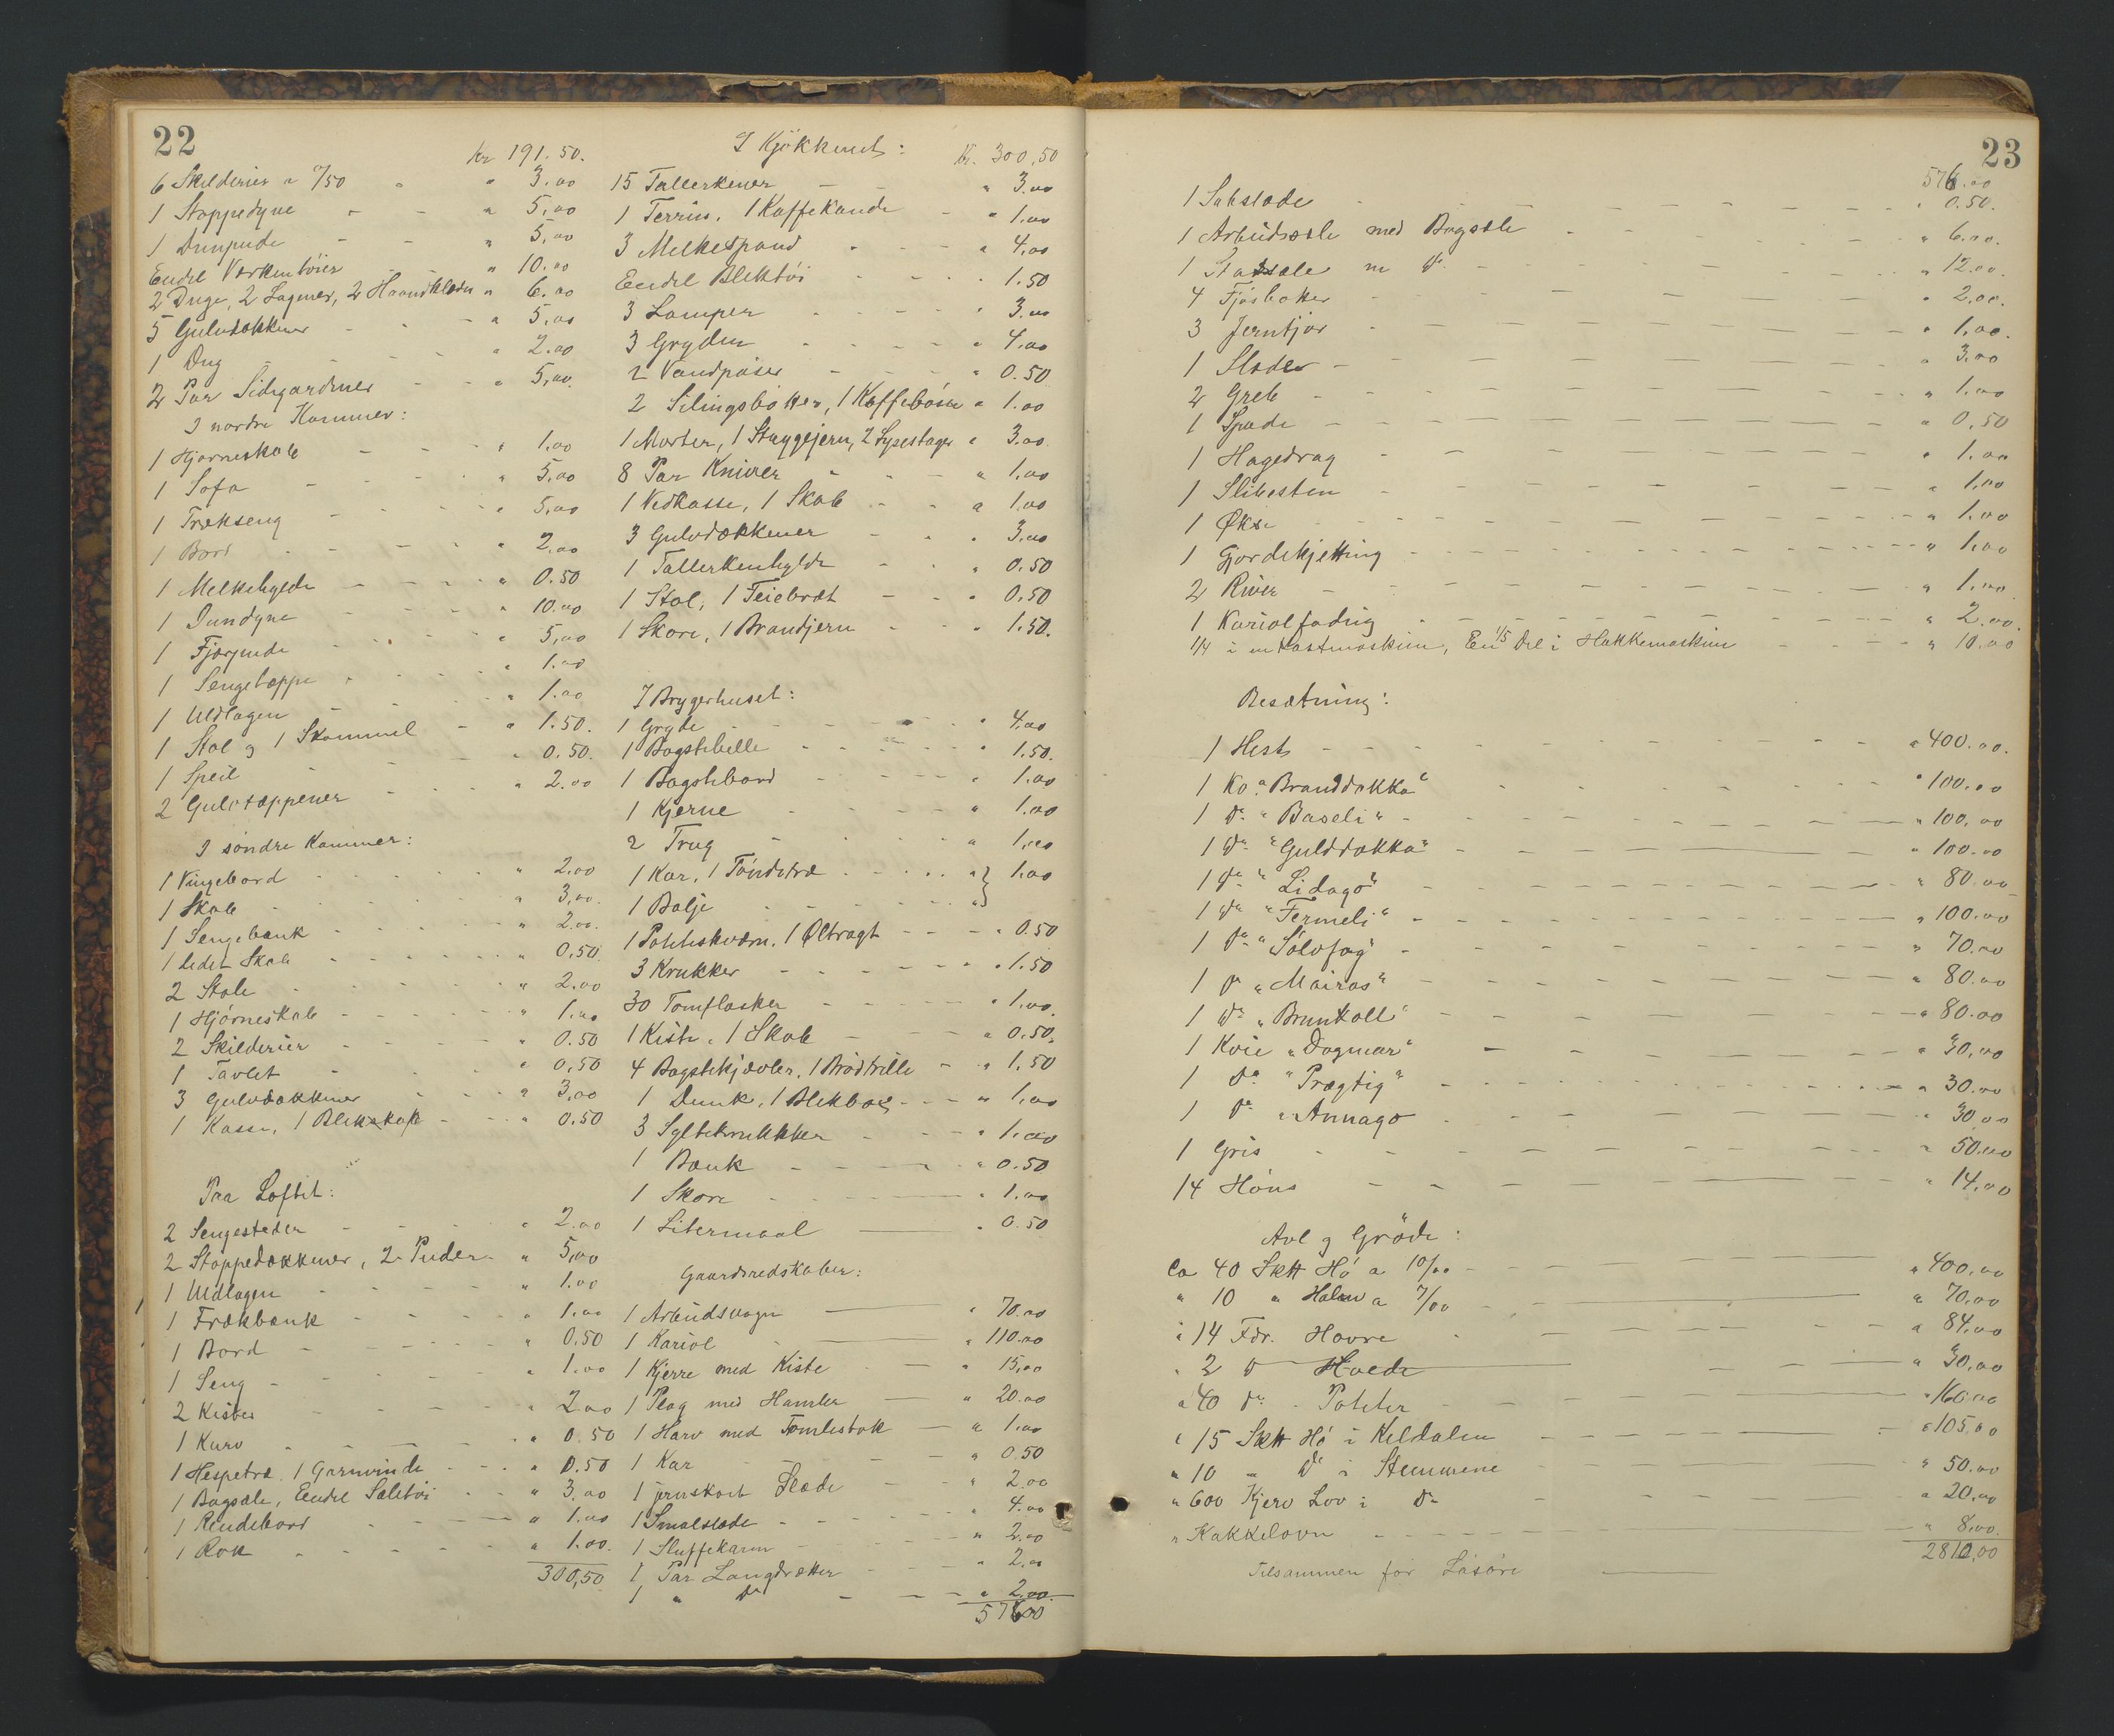 22
Kr 191.50.
6 Skilderier a 7/50 " " 3.00
1 Stoppedyne - - " 5,00
1 Dunpude - - " 5,00
Endel Værkentöier " 10.00
2 Duge, 2 Lagner, 2 Haandklæder " 6.00
5 Gulvdækkener - - " 5,00
1 Dug - - - " 2.00
2 Par Sidegardiner - - " 5,00.
I nordre Kammer:
1 Hjørneskab - - " 1.00
1 Sofa - - - " 5,00
1 Trækseng - - - " 5,00
1 Bord - - - " 2.00
1 Melkehylde - - - " 0.50
1 Dundyne - - - " 10.00
1 Fjærpude - - " 5,00
1 Sengetæppe - - " 1.00
1 Uldlagen - - - " 1.00
1 Stol og 1 Skammel - " 1.50.
1 Speil - - - " 0.50.
2 Gulvtæppener - - " 2.00
I söndre Kammer:
1 Vingebord - - - " 2.00
1 Skab - - - " 3,00.
1 Sengebænk - - - " 2.00.
1 Lidet Skab - - - " 0,50.
2 Stole - - - " 2.00
1 Hjörneskab - - - " 1.00
2 Skilderier - - - " 0.50
1 Tavlet - - - " 0,50
3 Gulvdækkener - - " 3,00
1 Kasse, 1 Blikskab - - " 0.50
Paa Loftet:
2 Sengesteder - - " 2.00
2 Stoppedækkener, 2 Puder - " 5,00
1 Uldlagen - - - " 1.00
1 Trækbænk - - - " 1.00
1 Bord - - - " 0,50
1 Seng - - - " 1.00
2 Kister - - - " 2.00
1 Kurv - - - " 0.50
1 Hespetræ, 1 Garnvinde - - " 0.50
1 Bogsæle, Endel Sæletöi - - " 3,00
1 Rendebord - - - " 1.00
1 Rok - - - " 1.00.
300,50
I Kjökkenet:
Kr. 300,50
15 Tallerkener - - " 3.00
1 Terrin, 1 Kaffekande - " 1.00
3 Melkespand - - - " 4,00
Endel Bliktöi - - - 1.50
3 Lamper - - - " 3.00
3 Gryder - - - " 4,00
2 Vandpøser - - - " 0.50
2 Silingsbøtter, 1 Kaffebøsse " 1.00
1 Morter, 1 Strygejern, 2 Lysestager " 3.00.
8 Par Kniver - - - " 1,00
1 Vedkasse, 1 Skab - - " 1,00
3 Gulvdækkener - - " 3,00
1 Tallerkenhylde - - " 0.50
1 Stol, 1 Feiebræt - - " 0,50
1 Skore, 1 Brandjern - - " 1.50.
I Bryggerhuset:
1 Gryde - - - " 4.00
1 Bagstehelle - - - " 1.50.
1 Bagstebord - - - " 1.00
1 Kjerne - - - " 1.00
2 Trug - - - " 1,00
1 Kar, 1 Töndetræ - - - " } 1.00
1 Balje - - - " }
1 Potteskværn, 1 Øltragt - - - " 0.50
3 Krukker - - - " 1.50
30 Tomflasker - - - " 1.00.
1 Kiste, 1 Skab - - - " 0.50.
4 Bagstekjævler, 1 Brödtrille - " 1,50
1 Dunk, 1 Blikboks - - - " 1,00
3 Syltekrukker - - " 1.00
1 Bænk - - - " 0.50
1 Skore - - - " 1.00
1 Litermaal - " 0.50
Gaardsredskaber:
1 Arbeidsvogn - " 70.00
1 Kariol - " 110.00
1 Kjerre med Kiste - - " 15,00
1 Plog med Humler - " 20.00
1 Harv med Tömlestok - " 1.00
1 Kar - - - " 0.50
1 jernskoet Slæde - " 2.00
1 Smalslæde - - - " 4.00
1 Sluffekarm - - " 2.00
1 Par Langdrætter - - " 2.00
1 " do - - - " 2,00.
576.00
23
576.00
1 Sakslæde - - - " 0.50.
1 Arbeidssæle med Bogsæle - - - " 6.00.
1 Stassæle m do - - - " 12.00.
4 Fjøsbøtter - - - " 2.00.
3 Jerntjor - - - " 1,00.
1 Sloder - - - " 3.00
2 Greb - - - " 1.00
1 Spade - - - " 0,50
1 Hagedrag - - - " 1.00
1 Slibesten - - - " 1,00
1 Økse - - - " 1.00
1 Gjordekjetting - - - " 1.00
2 River - - - " 1.00
1 Kariolfading - - - " 2.00.
1/4 i en Kastmaskin, En 1/5 Del i Hakkemaskin - - - " 10.00
Besætning:
1 Hest - - - " 400.00.
1 Ko "Branddokka" - - - " 100.00
1 do "Baseli" - - - " 100,00
1 do "Gulddokka" - - - " 100.00
1 do "Lidago" - - - " 80.00
1 do "Fermeli" - - - " 100.00
1 do "Sölvfag" - - - " 70.00
1 do "Mairos" - - - " 80.00
1 do "Brunkoll" - - - " 80.00
1 Kvie "Dagmar" - - - " 30,00
1 do "Prægtig" - - - " 30.00
1 do "Annago - - - " 30.00
1 Gris - - - " 50.00
14 Höns - - - " 14,00
Avl og Gröde:
Ca 40 Skt Hö a 10/00 - - - " 400,00
" 10 " Halm a 7/00 - - - " 70,00
" 14 Tdr. Havre - - - " 84,00
" 2 do Hvede - " 30,00
" 40 do Poteter - - - " 160.00
" 15 Skt Hö i Keldalen - - - " 105,00
" 10 " do i Stemmene - - - " 50.00
" 600 Kjerv Löv i do - - - " 20,00
" Kakkelovn - - - " 8,00.
Tilsammen for Løsöre - 2810,00